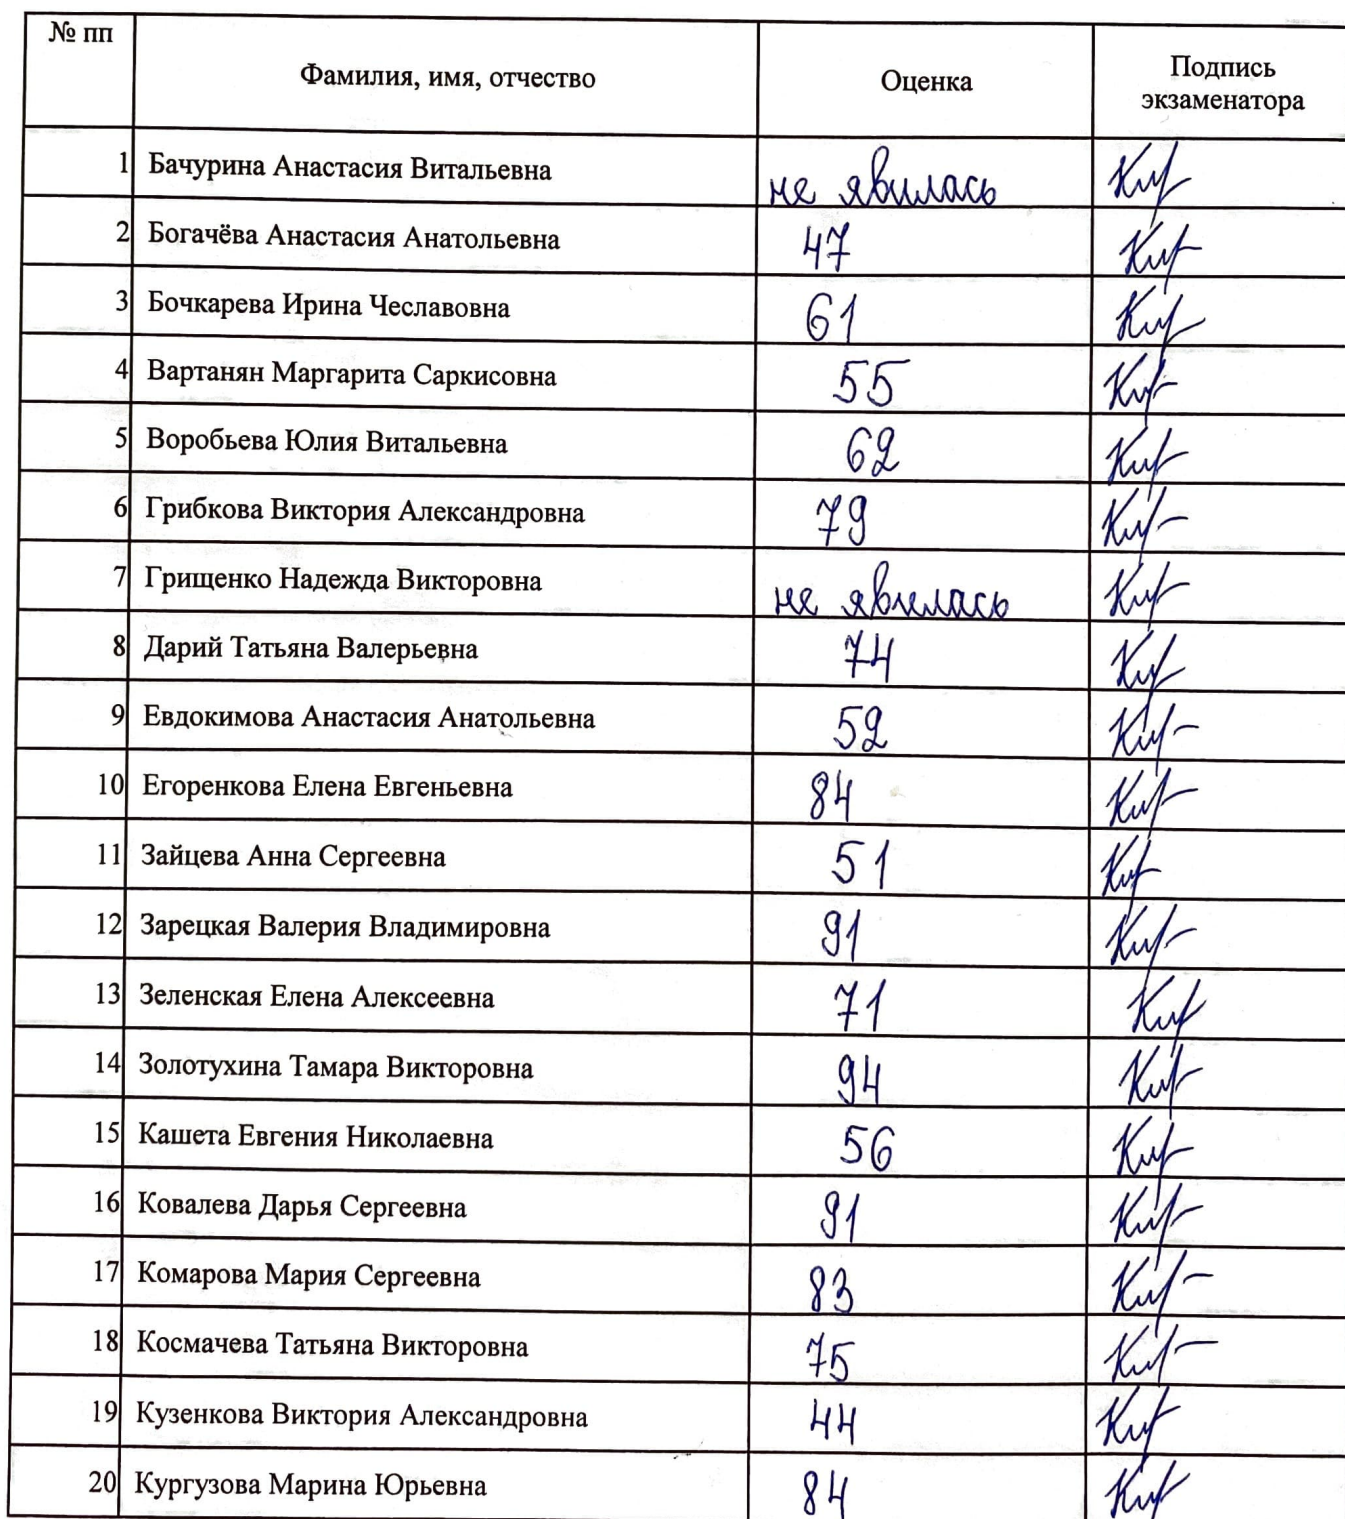 № пп Фамилия, имя, отчество Оценка Подпись
экзаменатора
1 Бачурина Анастасия Витальевна не явилась
2 Богачёва Анастасия Анатольевна 47
3 Бочкарева Ирина Чеславовна 61
4 Вартанян Маргарита Саркисовна 55
5 Воробьева Юлия Витальевна 62
6 Грибкова Виктория Александровна 79
7 Грищенко Надежда Викторовна не явилась
8 Дарий Татьяна Валерьевна 74
9 Евдокимова Анастасия Анатольевна 52
10 Егоренкова Елена Евгеньевна 84
11 Зайцева Анна Сергеевна 51
12 Зарецкая Валерия Владимировна 91
13 Зеленская Елена Алексеевна 71
14 Золотухина Тамара Викторовна 94
15 Кашета Евгения Николаевна 56
16 Ковалева Дарья Сергеевна 91
17 Комарова Мария Сергеевна 83
18 Космачева Татьяна Викторовна 75
19 Кузенкова Виктория Александровна 44
20 Кургузова Марина Юрьевна 84